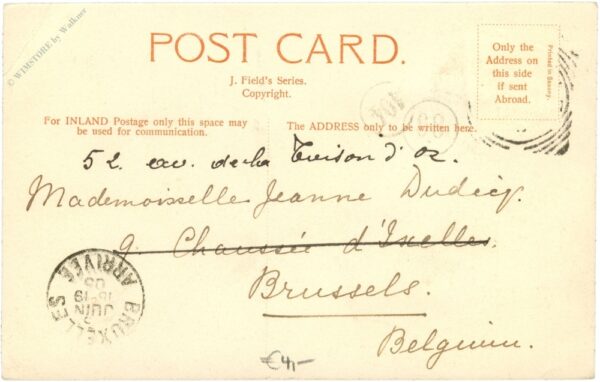 © WIMSTORE by Walkner
POST CARD.
J. Field's Series.
Copyright.
For INLAND Postage only this space may
be used for communication.
The ADDRESS only to be written here.
Only the
Address on
this side
if sent
Abroad.
Printed in Saxony.
52 av. de la Toison d'or.
Mademoiselle Jeanne
9. Chaussée d'Ixelles.
Brussels.
Belgium.
BRUXELLES
ARRIVÉE
JUIN
05
€4,-